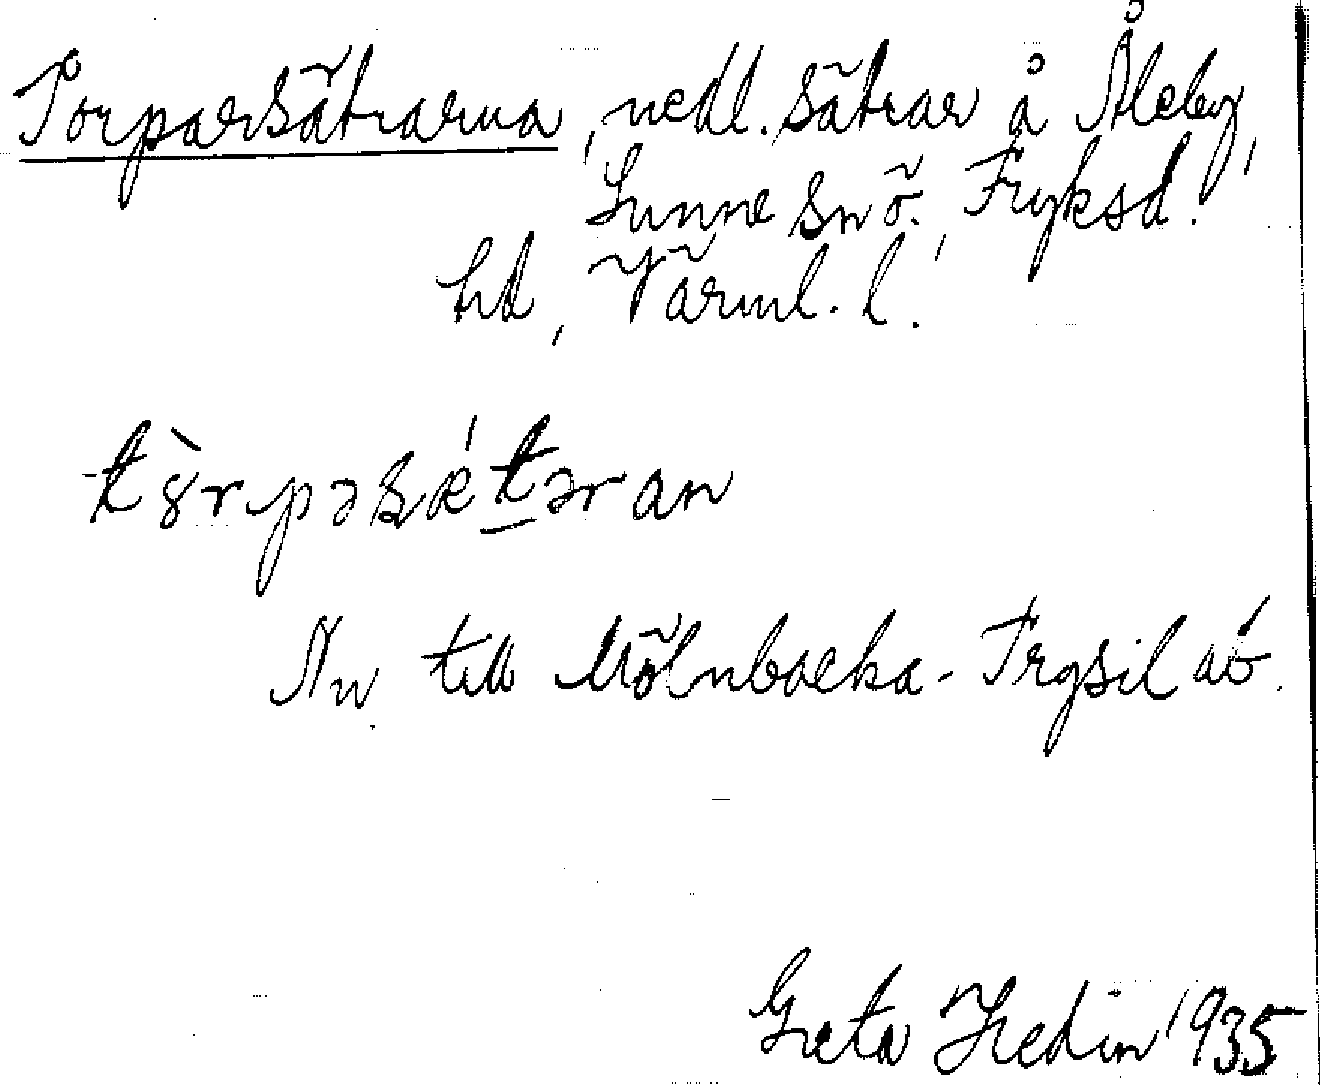 Torparsätrarna, nedl. sätrar å Åleby,
Sunne sn ö., Fryksd.
hd, Värml. l.
tòrpəsǽtəran
Nu till Mölnbacka-Trysil ab.
Greta Hedin 1935